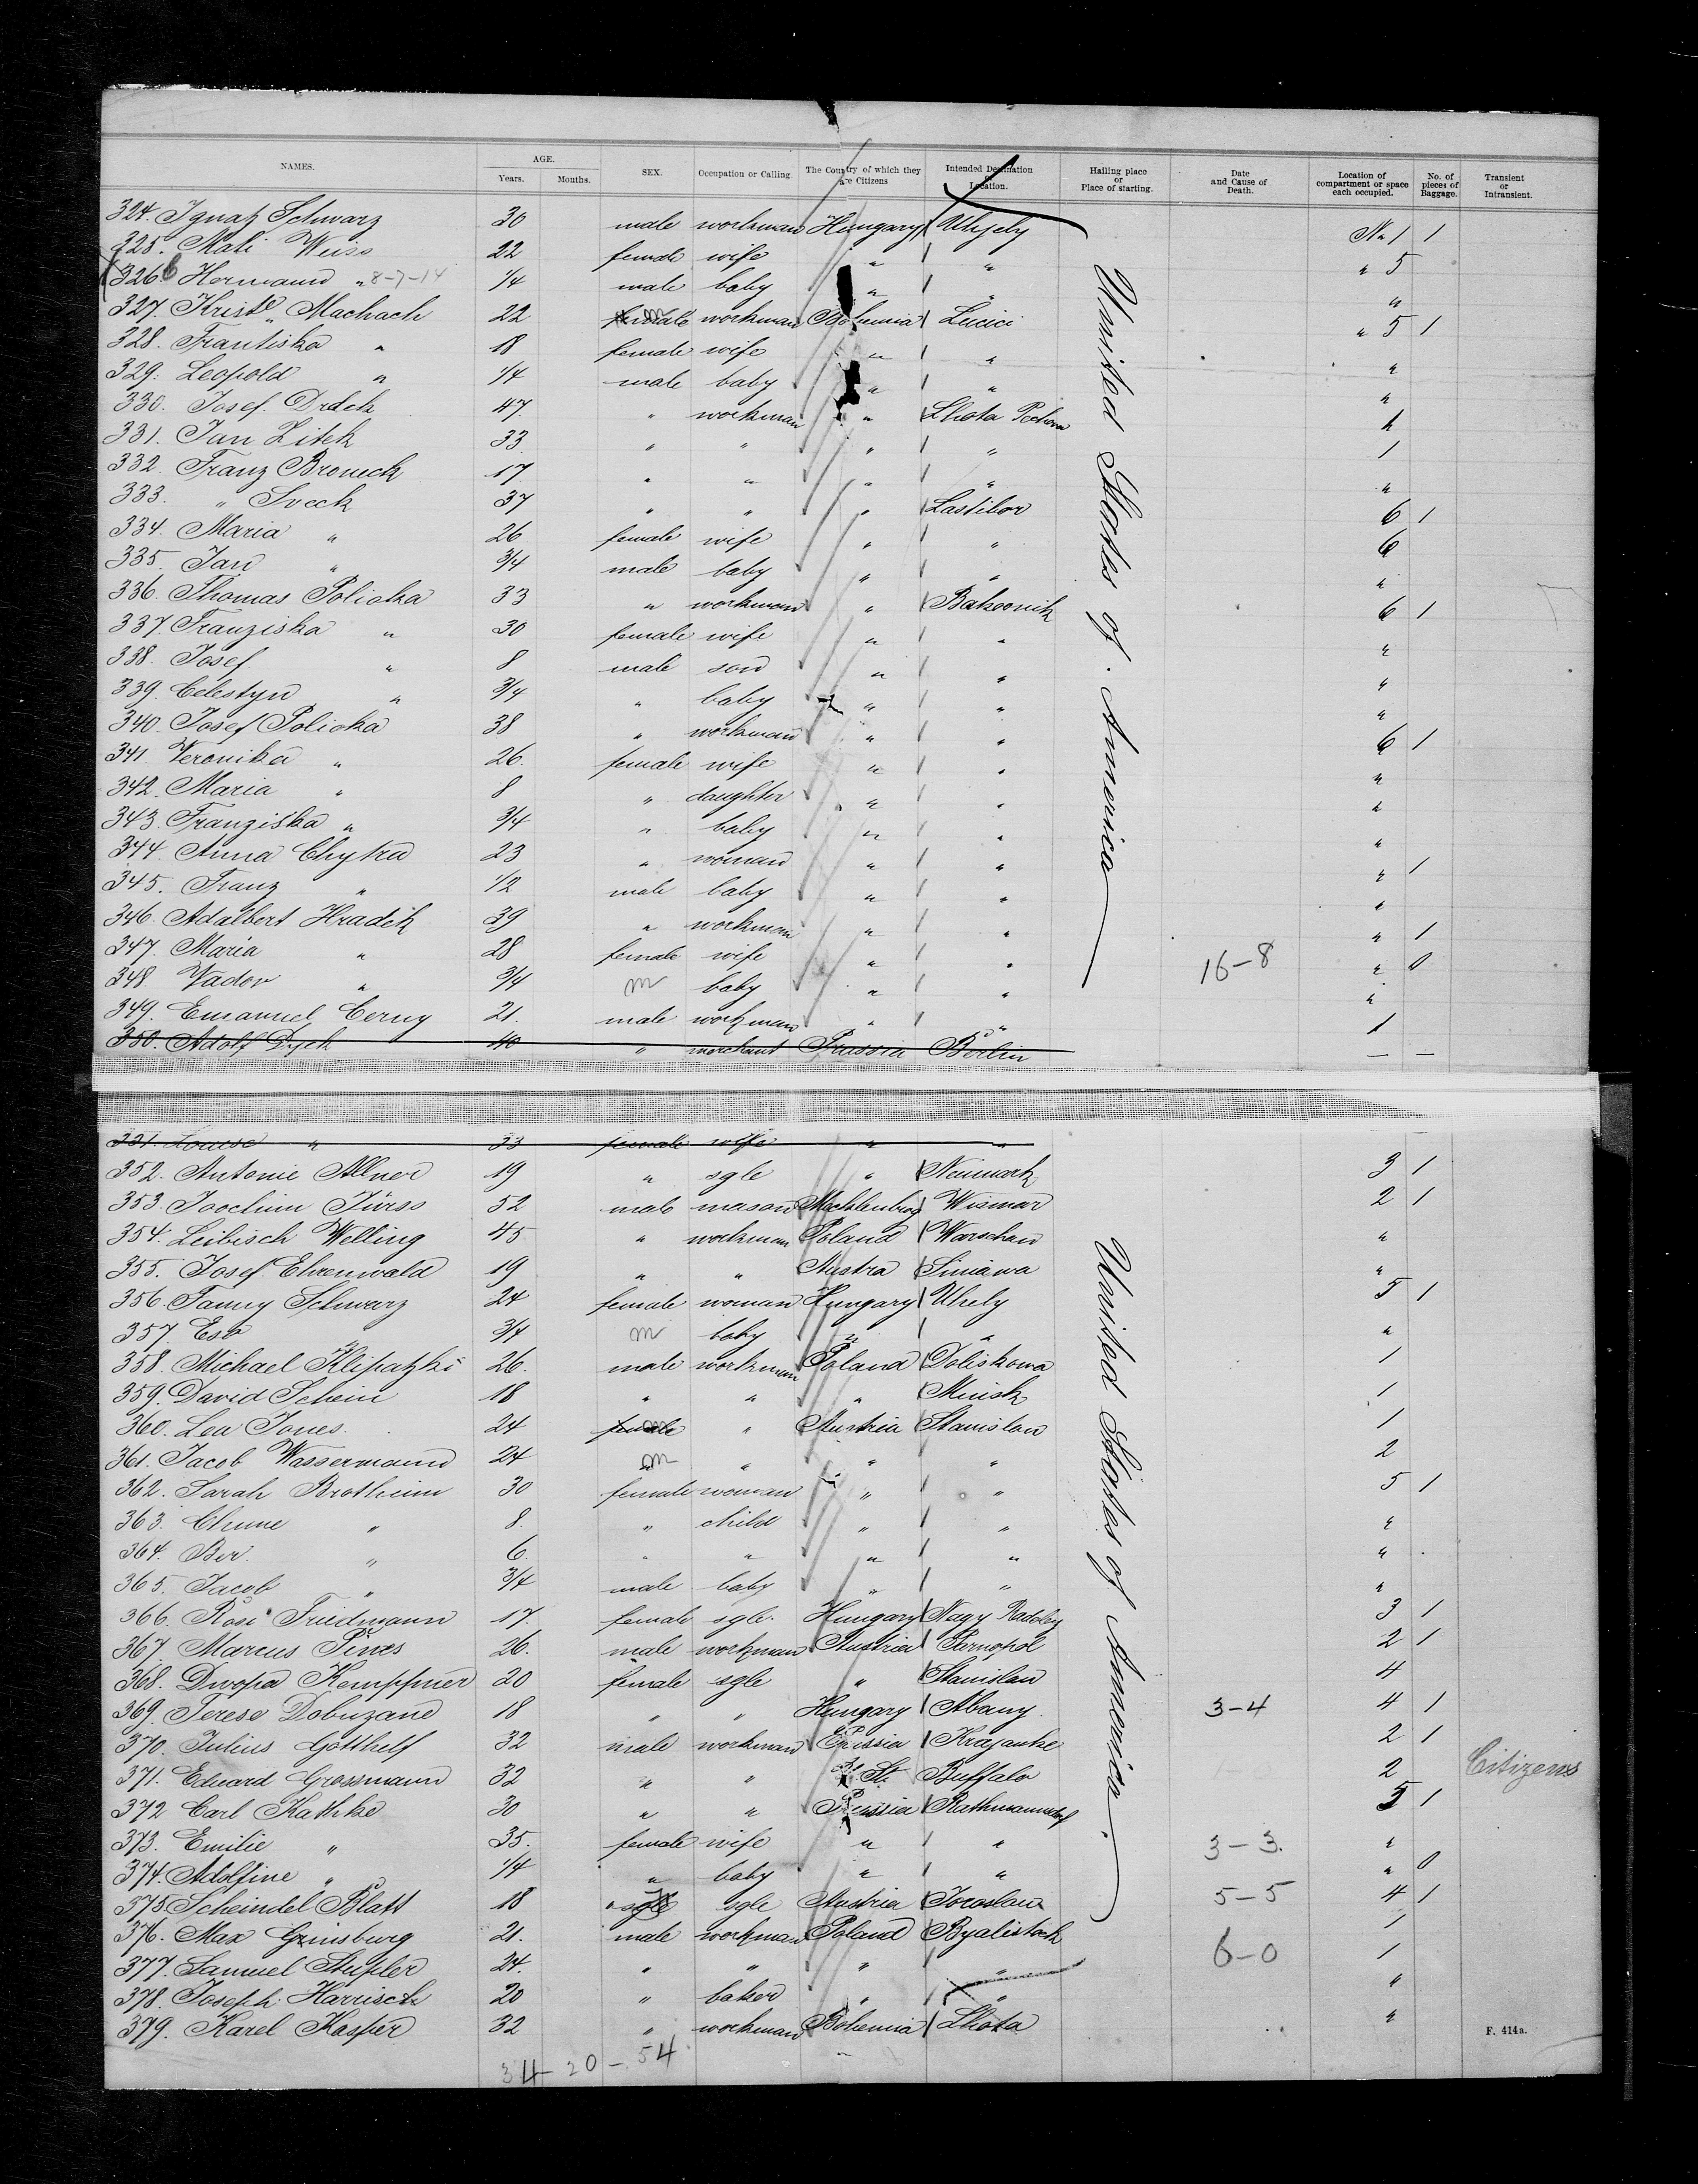 NAMES. AGE. Years. Months. SEX. Occupation or Calling. The Country of which they are Citizens Intended Destination or Location. Hailing place or Place of starting. Date and Cause of Death. Location of compartment or space each occupied. No. of pieces of Baggage. Transient or Intransient.
324. Ignatz Schwarz 30 male workman Hungary Uhyely No 1 1
325. Mali Weiss 22 female wife " " " 5
326. Hermann " 8-7-14 1/4 male baby " " "
327. Kristl. Machach 22 female m workman Bohemia Lucici " 5 1
328. Frantiska " 18 female wife " " "
329. Leopold " 1/4 male baby " " "
330. Josef Drdek 47 " workman " Lhota Pechova "
331. Jan Zitek 33 " " " " 1
332. Franz Broneck 17 " " " " "
333. " Sveck 37 " " " Lastibor 6 1
334. Maria " 26 female wife " " 6
335. Jan " 3/4 male baby " " "
336. Thomas Policka 33 " workman " Bakoonik 6 1
337. Franziska " 30 female wife " " "
338. Josef " 8 male son " " "
339. Celestyn " 3/4 " baby " " "
340. Josef Policka 38 " workman " " 6 1
341 Veronika " 26. female wife " " "
342. Maria " 8 " daughter " " "
343. Franziska " 3/4 " baby " " "
344. Anna Chytra 23 " woman " " " 1
345. Franz " 1/2 male baby " " "
346. Adalbert Hradek 39 " workman " " " 1
347. Maria " 28 female wife " " 16-8 " 0
348. Vador " 3/4 m baby " " "
349. Emanuel Cerny 21. male workman " " 1
350. Adolf Dyck 40 " merchant Prussia Berlin — —
United States of America
351. Louise " 33 female wife " "
352. Antonie Allner 19 " sgle " Neumark 3 1
353. Joochim Jürss 52 male mason Mecklenburg Wismar 2 1
354. Leibisch Welling 45 " workman Poland Warschau "
355. Josef Ehrenwald 19 " " Austra Siniawa "
356. Fanny Schwarz 24 female woman Hungary Uhely 5 1
357. Est " 3/4 m baby " " "
358. Michael Klipatzki 26. male workman Poland Doliskowa 1
359. David Schein 18 " " " Minsk 1
360. Lea Jones 24 female m " Austria Stanislau 1
361. Jacob Wassermann 24 m " " " 2
362. Sarah Brotheim 30 female woman " " 5 1
363. Chune " 8. " child " " "
364. Ber. " 6. " " " " "
365. Jacob " 3/4 male baby " " "
366. Rosi Friedmann 17. female sgle. Hungary Nagy Radoley 3 1
367. Marcus Pines 26. male workman Austria Tarnopol 2 1
368. Dwopa Kempfner 20 female sgle " Stanislau 4
369. Terese Dobuzane 18 " " Hungary Abany 3-4 4 1
370. Julius Gotthelf 32 male workman Prussia Krajanke 2 1
371. Eduard Grossmann 32 " " St. Buffalo 2 Citizens
372 Carl Kathke 30 " " Prussia Rathmannsdorf 5 1
373. Emilie " 35. female wife " " 3-3. "
374. Adolfine " 1/4 " baby " " " 0
375. Scheindel Blatt 18 " sgle sgle Austria Joroslau 5-5 4 1
376. Max Grinsburg 21. male workman Poland Byalistock 1
377. Samuel Stupler 24. " " " " 6-0 1
378. Joseph Harrisch 20 " baker " " "
379. Karel Kasper 32 " workman Bohemia Lhota "
United States of America
F. 414a.
34-20-54